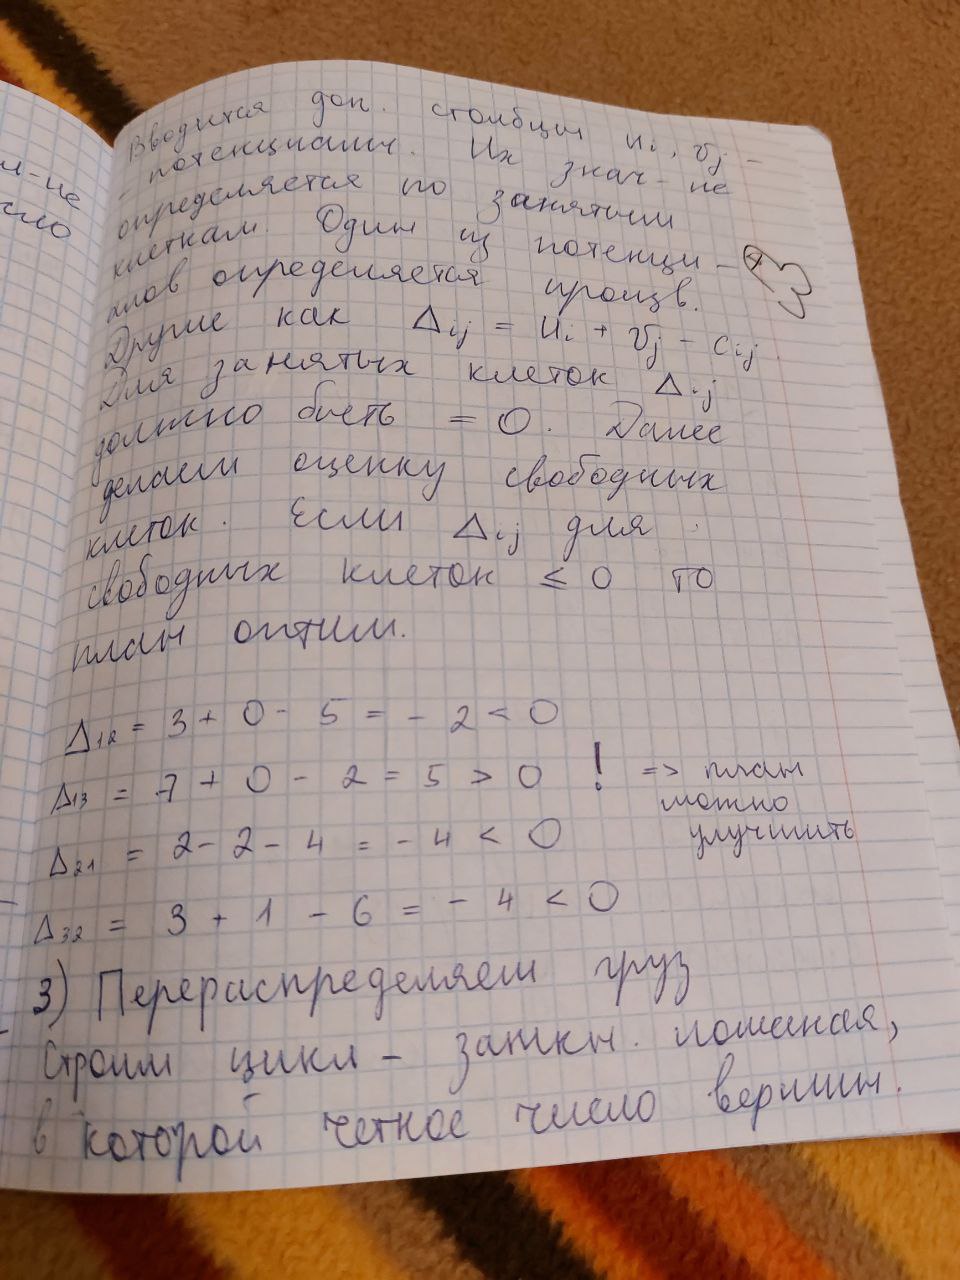 м-не
сло
Вводится доп. столбцы ui, vj -
- потенциалы. Их знач-не
определяется по занятым
клеткам. Один из потенци-
алов определяется произв.
Другие как Δij = ui + vj - cij.
Для занятых клеток Δij
должно быть = 0. Далее
делаем оценку свободных
клеток. Если Δij для
свободных клеток ≤ 0 то
план оптим.
Δ12 = 3 + 0 - 5 = - 2 < 0
Δ13 = 7 + 0 - 2 = 5 > 0 ! => план
можно
улучшить
Δ21 = 2 - 2 - 4 = - 4 < 0
Δ32 = 3 + 1 - 6 = - 4 < 0
3) Перераспределяем груз
Строим цикл - замкн. ломаная,
в которой четное число вершин.